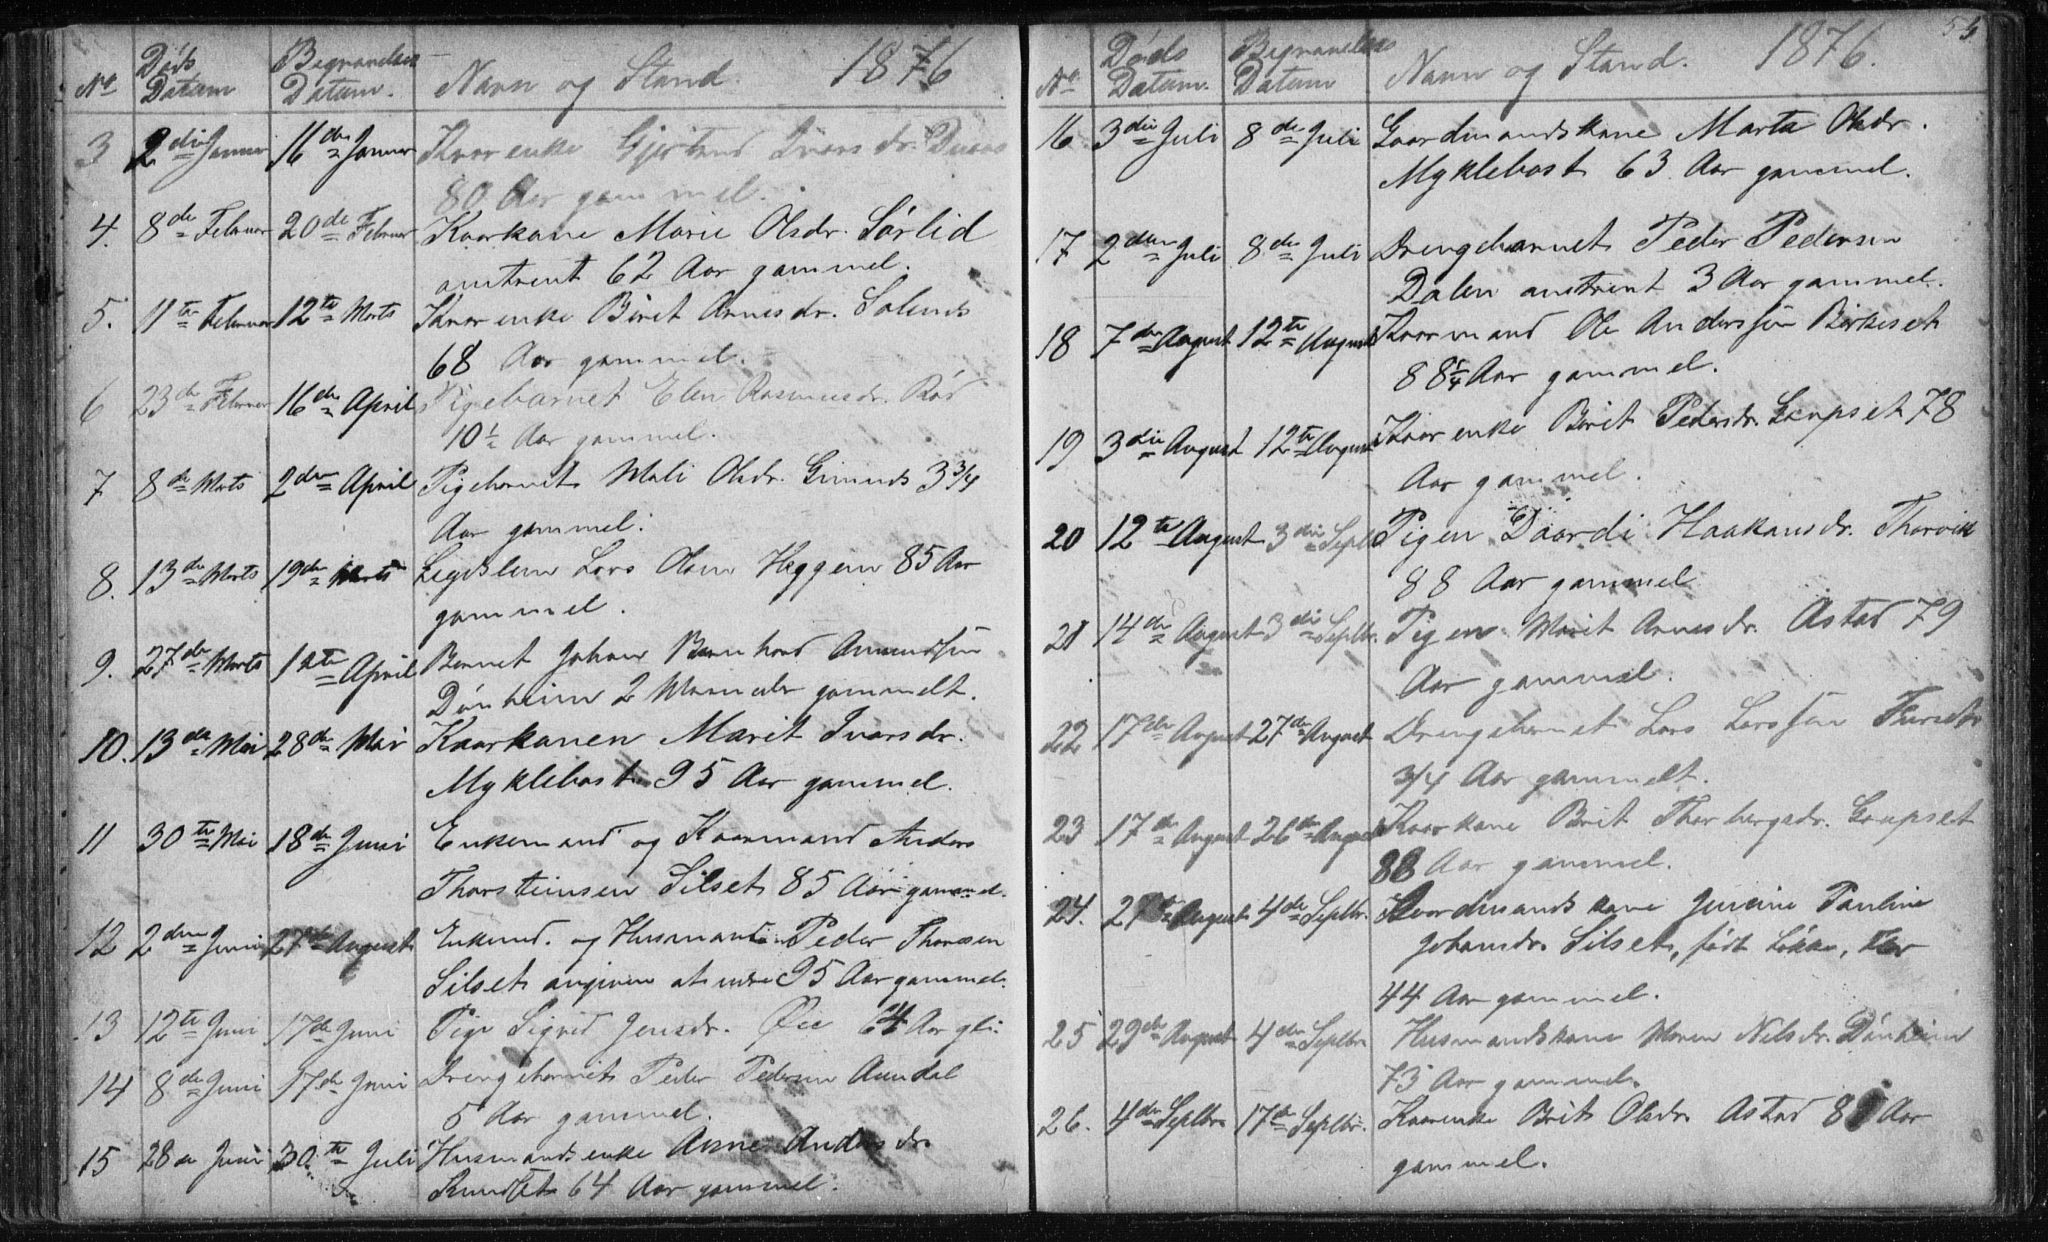 No Døds Datum Begravelses Datum. Navn og Stand. 1876
3 2den Januar 16de Januar Kaarenke Gjertrud Ivarsdr.
80 Aar gammel.
4. 8de Februar 20de Februar Kaarkone Marie Olsdr. Sørlid
omtrent 62 Aar gammel.
5. 11te Februar 12te Marts Kaarenke Berit Arnesdr. Solends
68 Aar gammel.
6 23de Februar 16de April Pigebarnet Elen Rasmusdr. Rød
10½ Aar gammel.
7 8de Marts 2den April Pigebarnet Mali Olsdr. Gimnæs 3 3/4
Aar gammel.
8. 13de Marts 19de Marts Lægdslem Lars Olsen Heggem 85 Aar
gammel.
9. 27de Marts 12te April Barnet Johan Bernhard Amundsen
Dønheim 2 Maaneder gammelt.
10. 13de Mai 28de Mai Kaarkonen Marit Ivarsdr.
Myklebost 95 Aar gammel.
11 30te Mai 18de Juni Enkemand og Kaarmand Anders
Thorsteinsen Silset 85 Aar gammel.
12 2den Juni 27de August Enkemd. og Husmand Peder Thoresen
Silset angiven at være 95 Aar gammel.
13 12te Juni 17de Juni Pige Sigrid Jensdr. Øie 64 Aar gl.
14 8de Juni 17de Juni Drengebarnet Peder Pedersen Aundal
5 Aar gammel.
15 28de Juni 30te Juli Husmandsenke Anne Andersdr.
64 Aar gammel.
No Døds Datum. Begravelses Datum Navn og Stand. 1876.
16 3die Juli 8de Juli Gaardmandskone Marta Olsdr.
Myklebost 63 Aar gammel.
17 2den Juli 8de Juli Drengebarnet Peder Pedersen
Dalen omtrent 3 Aar gammel.
18 7de August 12te August Kaarmand Ole Andersen Birkeset
88¼ Aar gammel.
19 3die August 12te August Kaarenke Berit Pedersdr. Gaupset 78
Aar gammel.
20 12te August 3die Septbr. Pigen Daardi Haakansdr. Thorvik
88 Aar gammel
21 14de August 3die Septbr. Pigen Marit Arnesdr. Astad 79
Aar gammel.
22 17de August 27de August Drengebarnet Lars Larssen Furseth
3/4 Aar gammelt.
23 17de August 26de August Kaarkone Brit Thorbergsdr. Gaupset
88 Aar gammel.
24. 27de August 4de Septbr. Gaardmandskone Pauline
Johansdr. Silset, født Løkke,
44 Aar gammel.
25 29de August 4de Septbr. Husmandskone Maren Nilsdr. Dønheim
73 Aar gammel.
26. 4de Septbr. 17de Septbr. Kaarenke Brit Olsdr. Astad Aar
gammel.